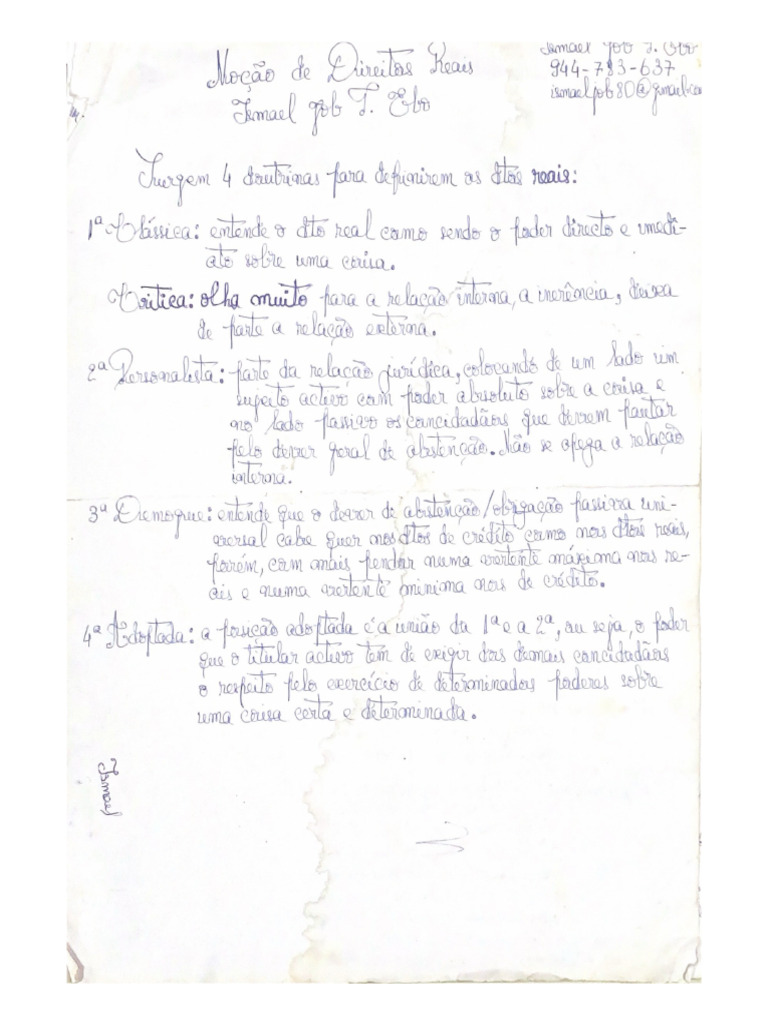 Ismael Job T. Ebo
944-783-637
ismaeljob80@gmail.com
Noção de Direitos Reais
Ismael Job T. Ebo
Surgem 4 doutrinas para definirem os dtos reais:
1ª Clássica: entende o dto real como sendo o poder directo e imedi-
ato sobre uma coisa.
Crítica: olha muito para a relação interna, a inerência, deixa
de parte a relação externa.
2ª Personalista: parte da relação jurídica, colocando de um lado um
sujeito activo com poder absoluto sobre a coisa e
no lado passivo os concidadãos que devem pautar
pelo dever geral de abstenção. Não se apega a relação
interna.
3ª Demogue: entende que o dever de abstenção/obrigação passiva uni-
versal cabe quer nos dtos de crédito como nos dtos reais,
porém, com mais pendor numa vertente máxima nos re-
ais e numa vertente minima nos de crédito.
4ª Adoptada: a posição adoptada é a união da 1ª e a 2ª, ou seja, o poder
que o titular activo tem de exigir dos demais concidadãos
o respeito pelo exercício de determinados poderes sobre
uma coisa certa e determinada.
Ismael